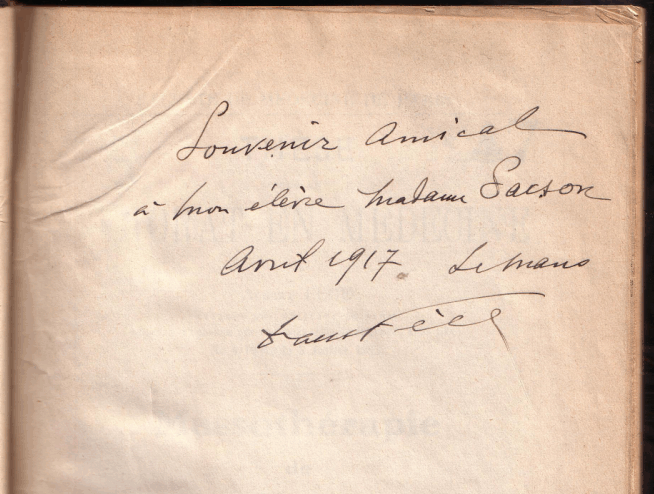 Souvenir Amical
à mon élève Madame Sacson
Avril 1917 Le Mans